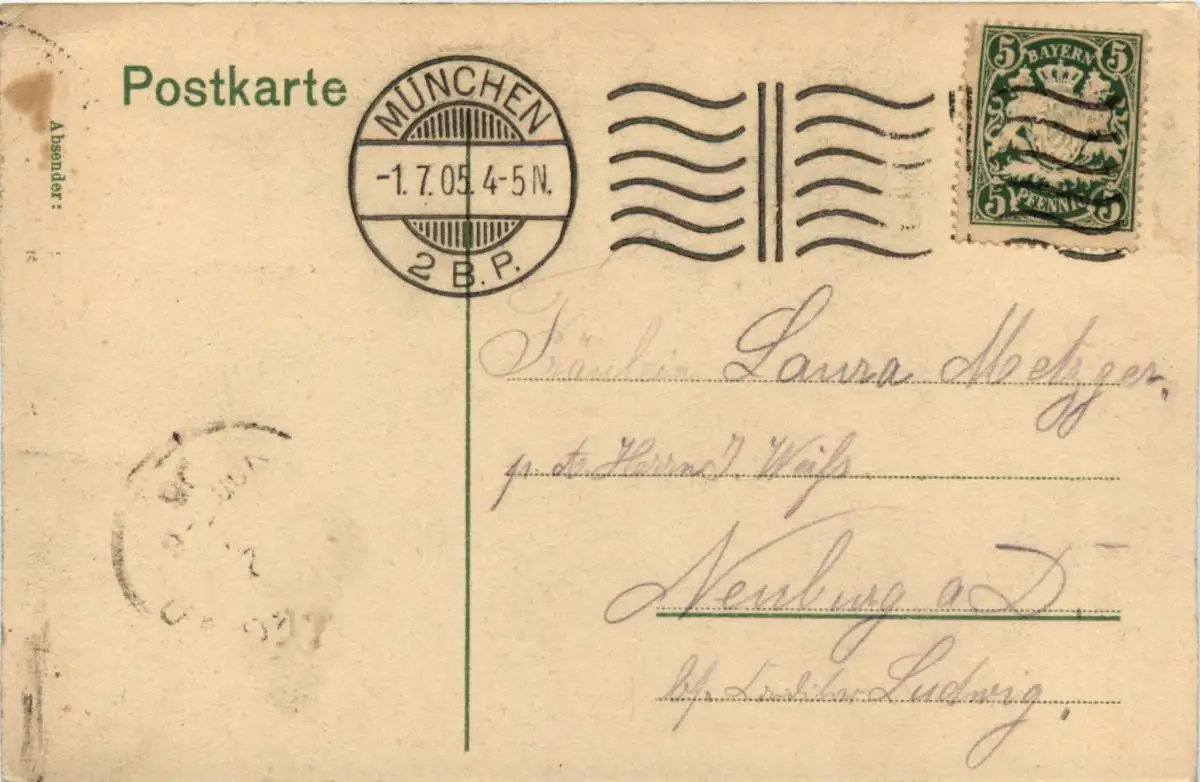 Postkarte
MÜNCHEN
-1.7.05. 4-5 N.
2 B.P.
5 BAYERN 5
5 PFENNIG 5
Absender:
Fräulein Laura Metzger.
Herrn J. Weiß
Neuburg a D.
Ludwig.